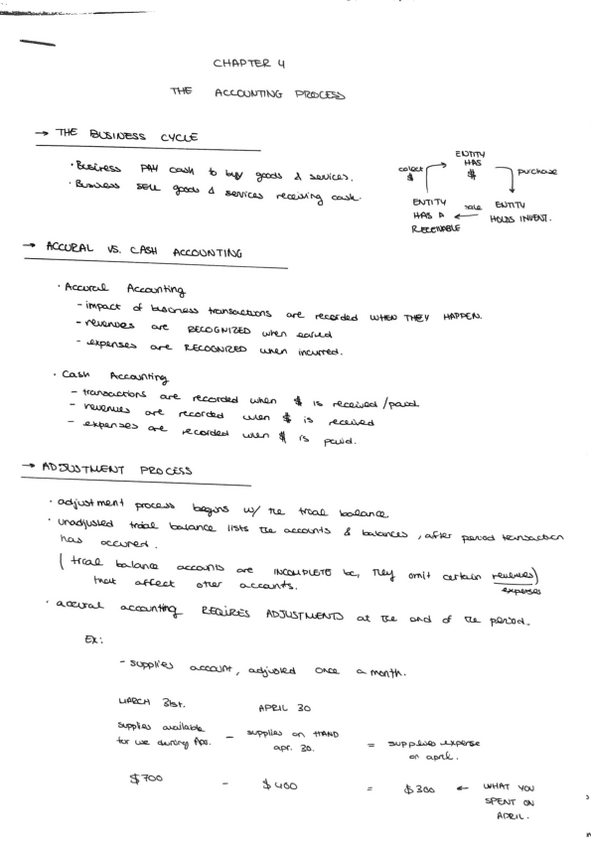 CHAPTER 4
THE ACCOUNTING PROCESS
→ THE BUSINESS CYCLE
· Business PAY cash to buy goods & services.
· Business SELL goods & services receiving cash.
ENTITY
HAS
$
colect
$
purchase
ENTITY
HAS A
RECEIVABLE
sale
ENTITY
HOLDS INVENT.
→ ACCURAL VS. CASH ACCOUNTING
· Accural Accounting
- impact of business transactions are recorded WHEN THEY HAPPEN.
- revenues are RECOGNIZED when earned
- expenses are RECOGNIZED when incurred.
· Cash Accounting
- transactions are recorded when $ is received/paid
- revenues are recorded when $ is received
- expenses are recorded when $ is paid.
→ ADJUSTMENT PROCESS
· adjustment process begins w/ the trial balance
· unadjusted trial balance lists the accounts & balances, after period transaction
has occured.
( trial balance accounts are INCOMPLETE bc, they omit certain revenues)
expenses
that affect other accounts.
· accural accounting REQIRES ADJUSTMENTS at the end of the period.
Ex:
- supplies account, adjusted once a month.
MARCH 31st. APRIL 30
supplies available
for use during Apr. - supplies on HAND
apr. 30. = supplies expense
on april.
$700 - $400 = $300 ← WHAT YOU
SPENT ON
APRIL.